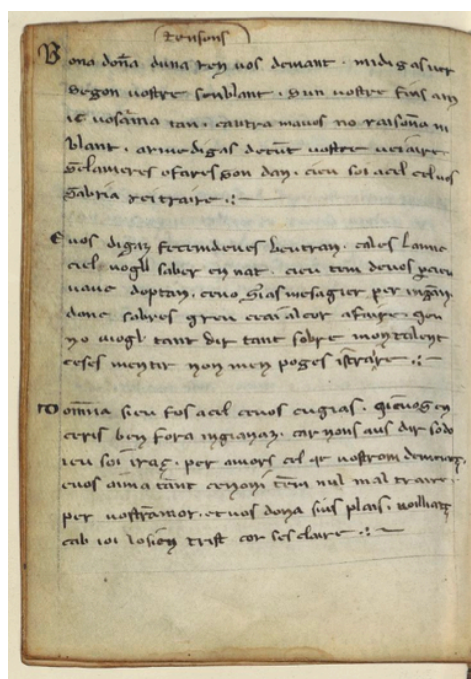 tensons
Bona dona duna ren vos demant · midigas uer
segon uostre senblant · sun uostre fins am
ic uosama tan · cautra mauos no raisona ni
blant · arme digas detut uostre ueiaire
selameres ofares son dan · cieu soi acil celuos
sabria retraire ·:~
Euos digaz fecemdeues bertran · cales lamic
ciel uogll saber en nat · cieu tem deuos
uaue doptan · ceuo sias mesagier per ingan ·
donc sabres greu cecialcor afaire · qeu
no uogl tant dir tant sobre mon talent
ceses mentir non men poges istraire ·:~
Domna sieu fos acil ceuos cugias ·
ceris ben fora ingianaz · car nons aus dir sodo
ieu soi iraç · per amors cel qe uostrom
euos aima tant cenoni tem nul mal traire ·
per uostramor · et uos dona sius plais ·
cab ioi lo sieu trist cor ses claire ·:~